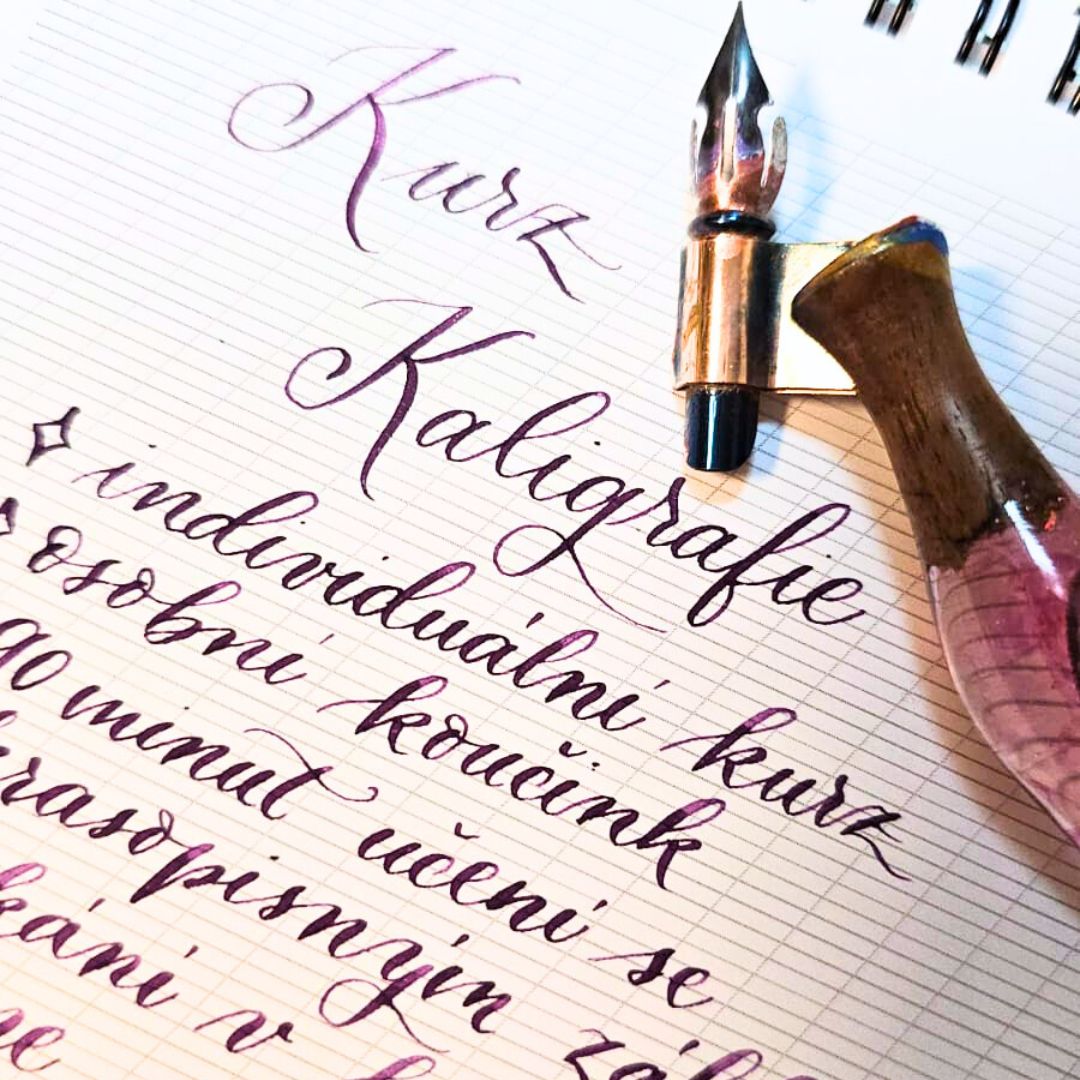 Kurz
Kaligrafie
individuální kurz
osobní koučink
90 minut učení se
krasopisným
v